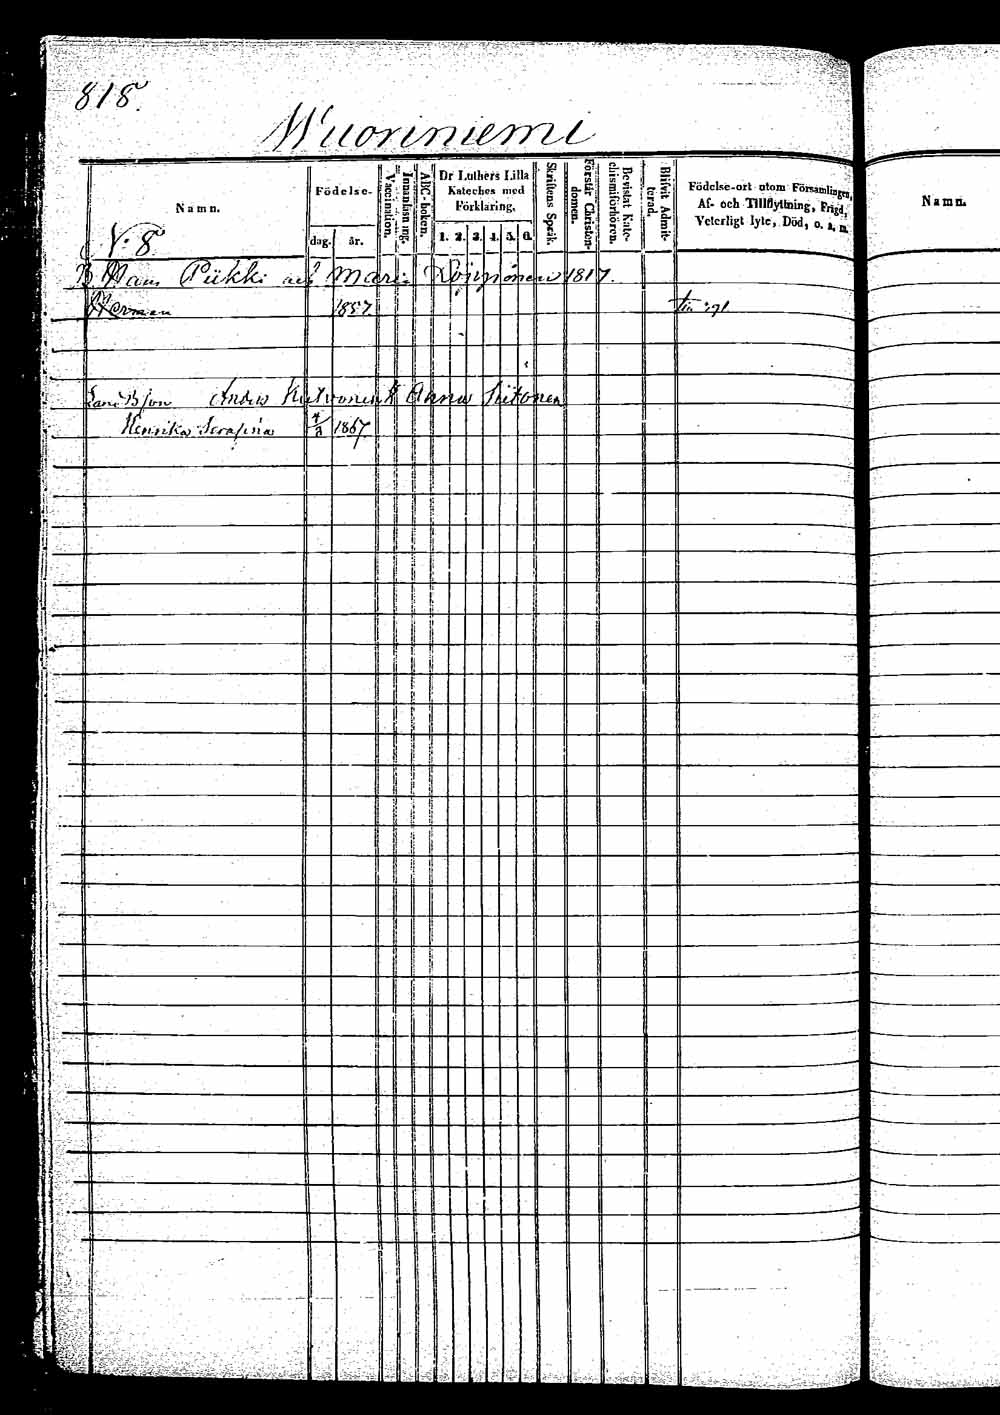 818.
Wuoriniemi
Namn.
Födelse-
dag. år.
Vaccination.
Innanläsning.
ABC-boken.
Dr Luthers Lilla
Kateches med
Förklaring.
1. 2. 3. 4. 5. 6.
Skriftens Språk.
Förstår Christen-
domen.
Bevistat Kate-
chismiförhören.
Blifwit Admit-
terad.
Födelse-ort utom Församlingen,
Af- och Tillflyttning, Frigd,
Veterligt lyte, Död, o. s. m.
Namn.
N. 8
B Hans Piikki Maria Köngönen 1817.
Herman 1857
Anders Hutvonen Anna Siitonen
Henrika Serafina 4/3 1867